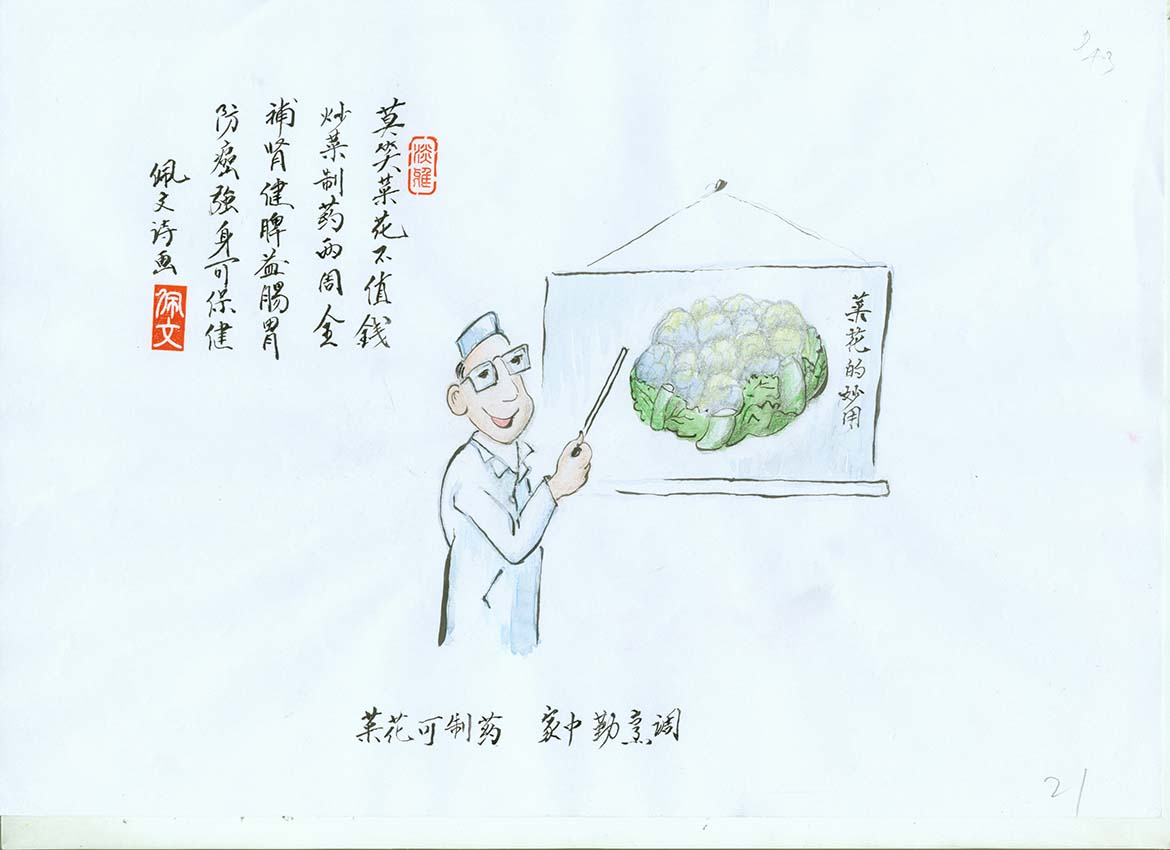 莫笑菜花不值錢
炒菜制药两周全
補肾健脾益腸胃
防癌強身可保健
佩文诗画
佩文
淡雅
菜花的妙用
菜花可制药 家中勤烹调
21